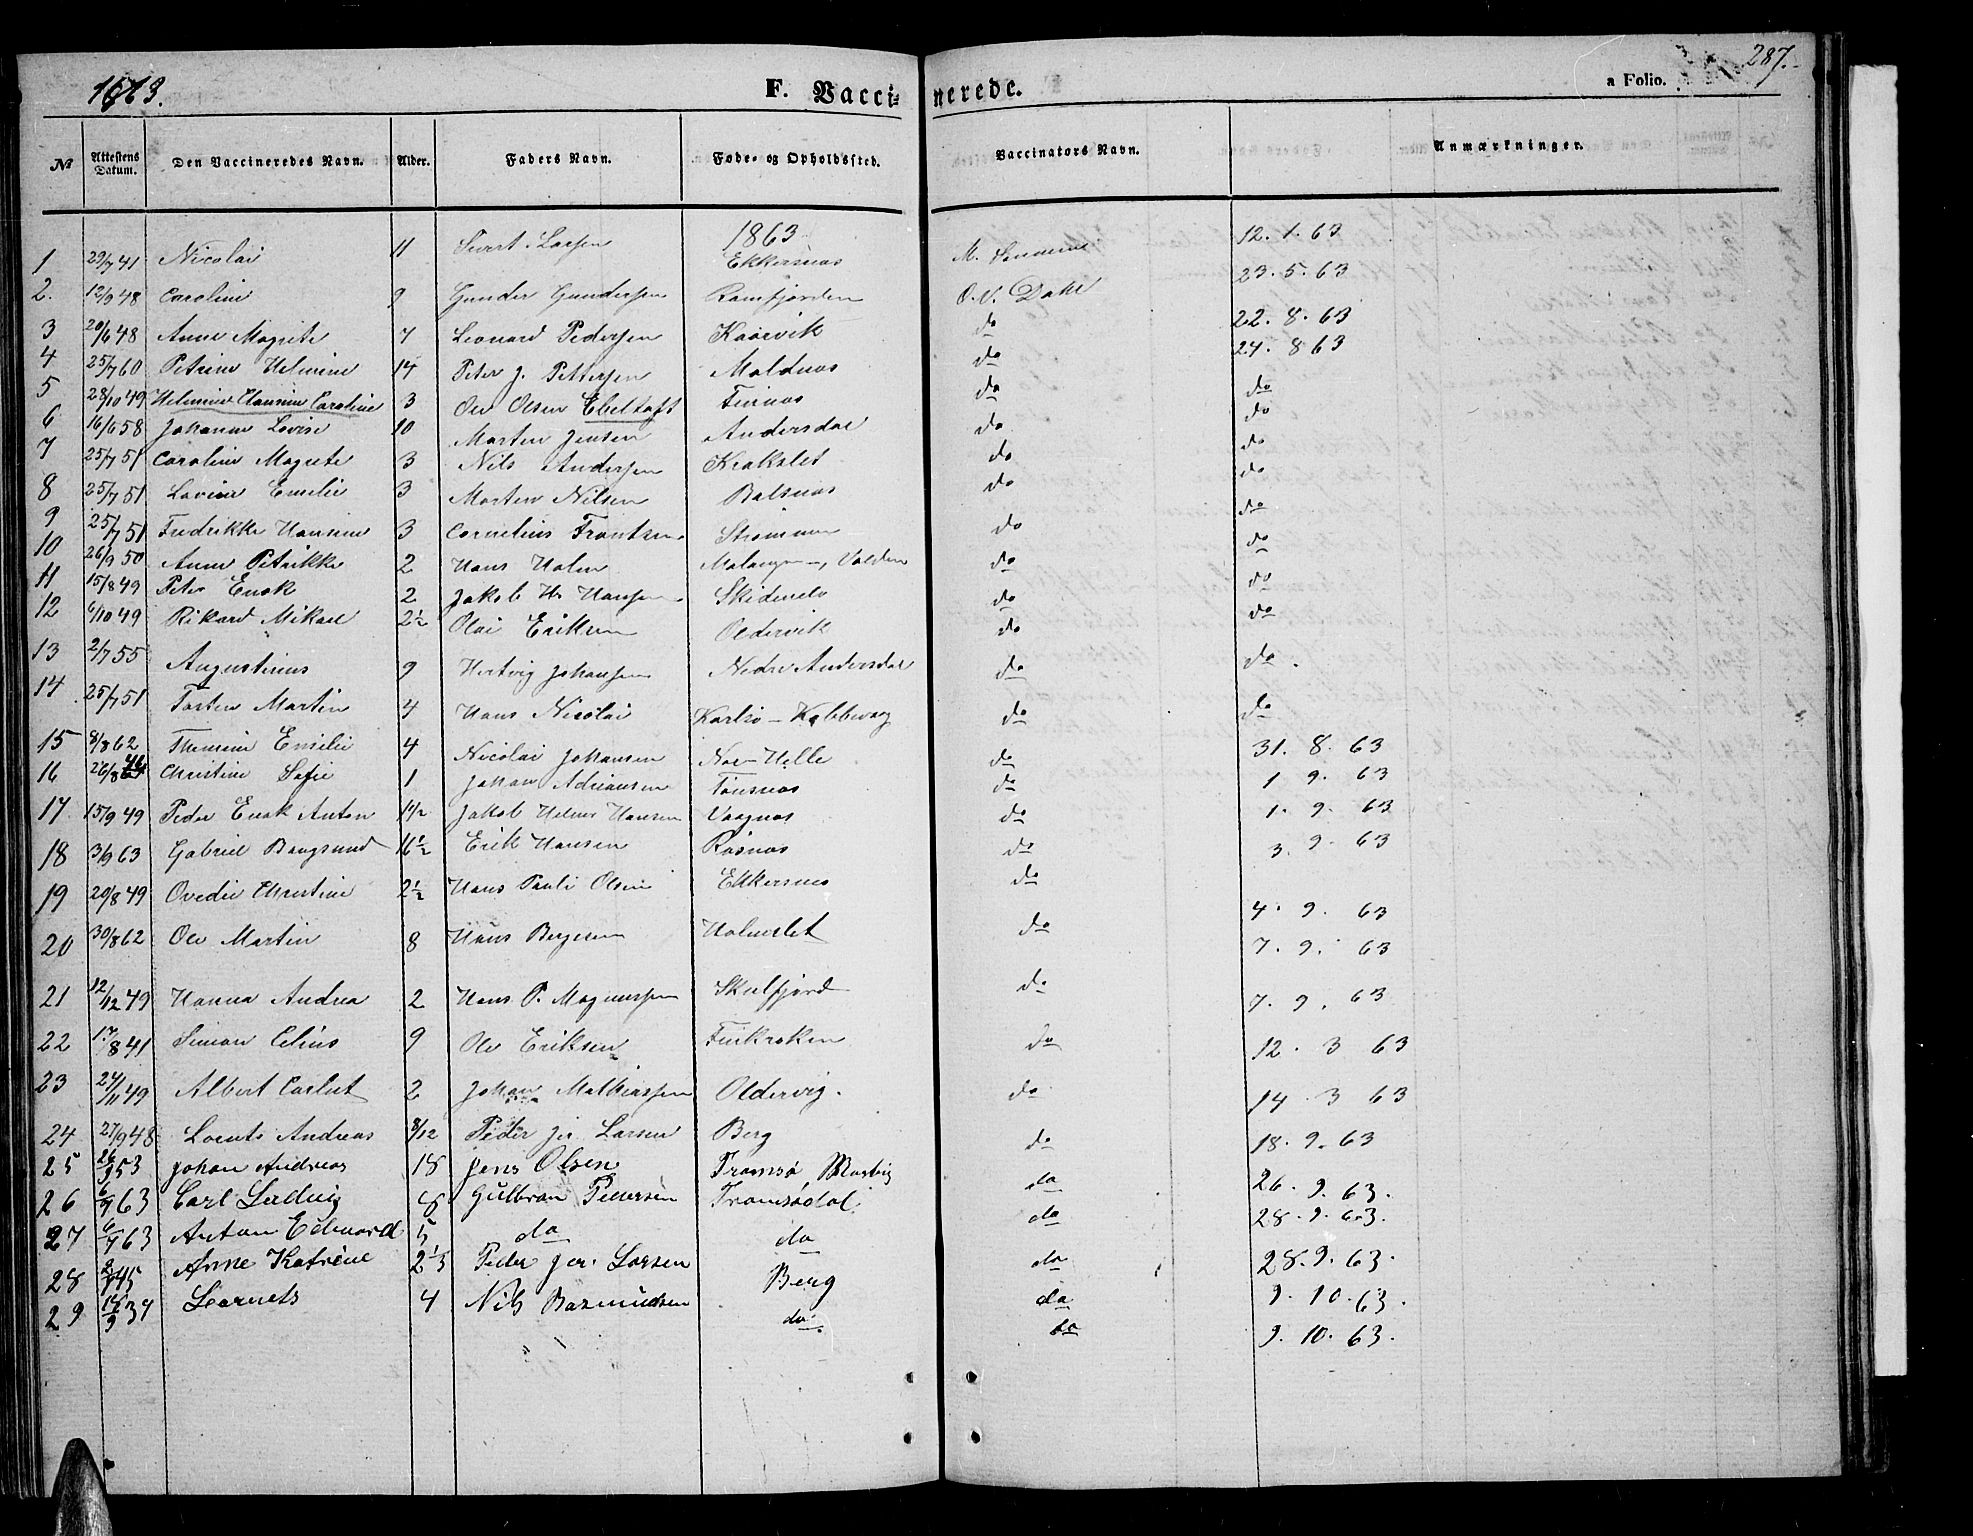 1863.
F. Vaccinerede.
a Folio. 287.
№ Attestens Datum. Den Vaccineredes Navn. Alder. Faders Navn. Føde- og Opholdssted. Vaccinators Navn. Anmærkninger.
1863
1 29/7 41 Nicolai 11 Sivert Larsen Ekkersnas M. 12. 1. 63
2. 12/9 48 Caroline 9 Gunder Gundersen Ramfjorden O. V. Dahl 23. 5. 63
3 20/6 48 Anne Magrete 7 Leonard Pedersen Kaarvik do 22. 8. 63
4 25/7 60 Petrine Helmine 14 Peter J. Pettersen Maldnas do 24. 8 63
5 28/10 49 Helmine Hansine Caroline 3 Ole Olsen Ebeltoft Finnas do do
6 16/6 58 Johanne Lovise 10 Morten Jensen Andersdal do do
7 25/7 51 Caroline Magrete 3 Nils Andersen Krakslet do do
8 25/7 51 Lovine Emelie 3 Morten Nilsen Balsnas do do
9 25/7 51 Fredrikke Hansine 3 Cornelius Frantsen Strømmen do do
10 26/9 50 Anne Petrikke 2 Hans Holm Malangen, Valden do do
11 15/8 49 Peter Enok 2 Jakob H. Hansen Skidnelv do do
12 6/10 49 Rikard Mikael 2½ Olai Eriksen Oldervik do do
13 2/7 55 Augustinus 9 Hertvig Johansen Nedre Andersdal do do.
14 25/7 51 Torsten Martin 4 Hans Nicolai Karlsø - Kobbevag do do
15 8/8 62 Emilie 4 Nicolai Johansen Nor-Helle do 31. 8. 63
16 26/8 46 Christine Sofie 1 Johan Adriansen Tønsnas do 1 9. 63
17 15/9 49 Peder Enok Anton 1½ Jakob Helmer Hansen Vaagnas do 1. 9. 63
18 3/9 63 Gabriel Bangsund 16½ Erik Hansen Røsnas do 3. 9. 63
19 20/8 49 Ovedie Christine 2½ Hans Pauli Olsen Ekkersnes do 4. 9. 63
20 30/8 62 Ole Martin 8 Hans Bergesen Holmslet do 7. 9. 63
21 12/12 49 Hanna Andrea 2 Hans P. Magnussen Skulfjord do 7. 9. 63
22 17/8 41 Simon Celius 9 Ole Eriksen Finkroken do 12. 3 63
23 24/11 49 Albert Carlut 2 Johan Mathiassen Oldervig. do 14. 3 63
24 27/9 48 Lorents Andreas 8/12 Peder Jer. Larsen Berg do 18. 9. 63
25 26/9 53 Johan Andreas 18 Jens Olsen Tromsø do 26. 9. 63.
26 6/9 63 Carl Ludvig 8 Gulbran Pedersen Tromsødal. do 28. 9. 63.
27 6/9 63 Anton Edvard 5 do do do 28. 9. 63.
28 45 Anne Katrine 2⅓ Peder Jer. Larsen Berg do 9. 10. 63.
29 34 Lorents 4 Nils Rasmudsen do. do 9. 10. 63.